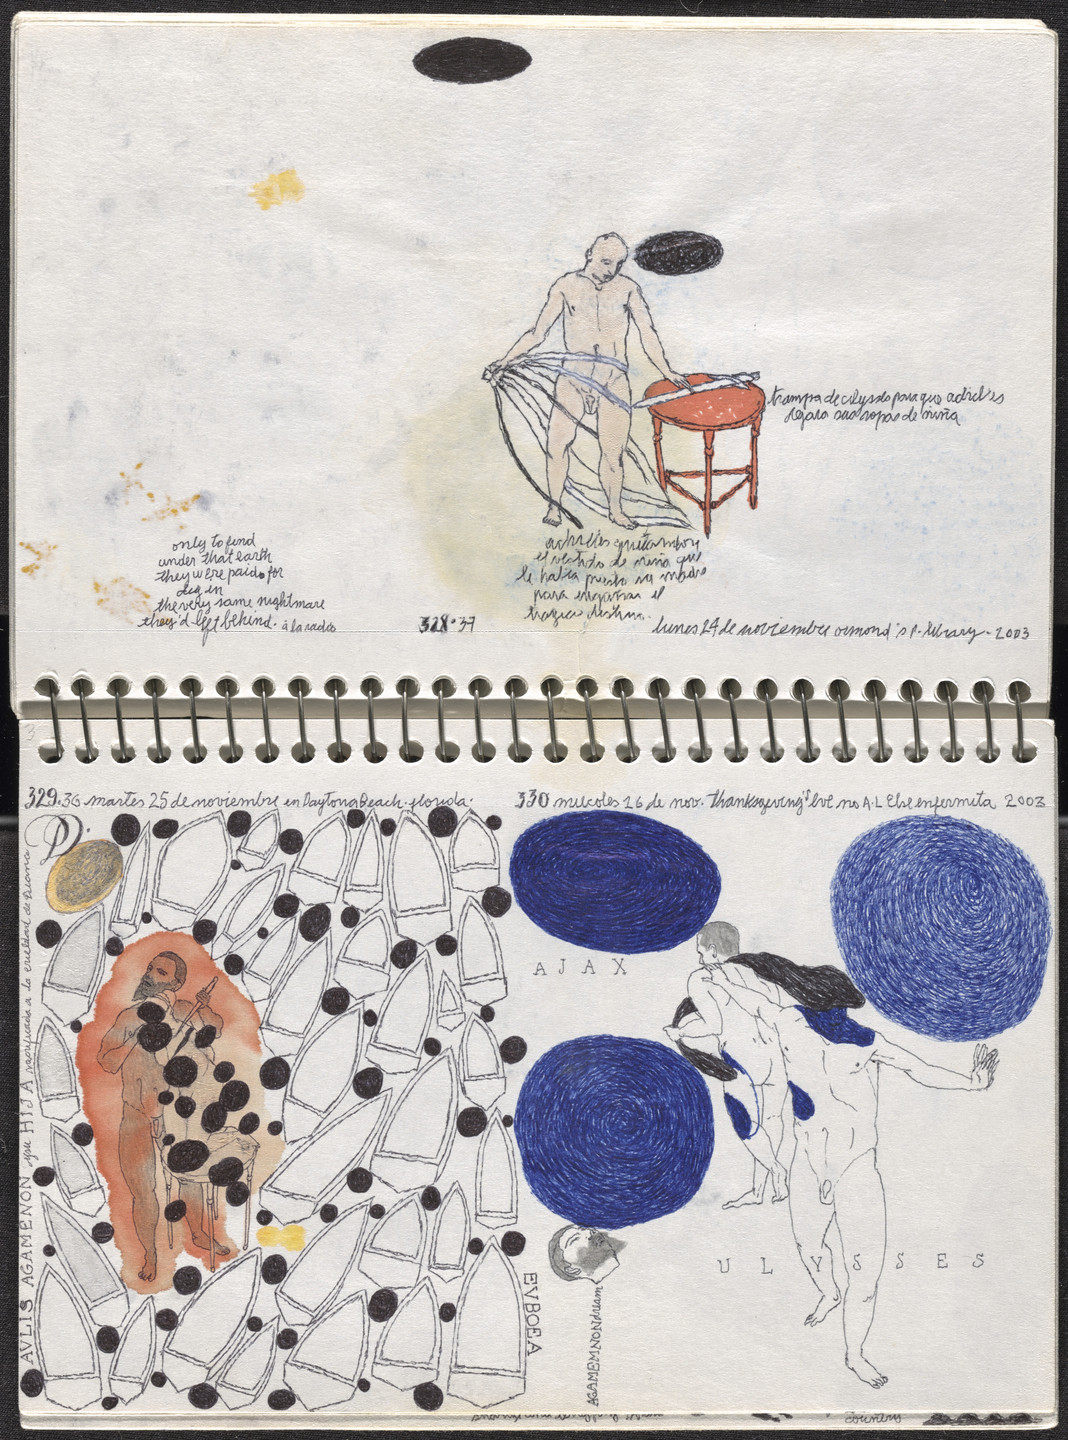 trampa de ulysses para que achilles
dejara sus ropas de niña
only to find
under that earth
they were paid for
dig in
the very same nightmare
they'd left behind.
achilles
el vestido de niña que
le había puesto su madre
para engañar el
trágico destino.
328·37
lunes 24 de noviembre ormond's P. library - 2003
329.36 martes 25 de noviembre en Daytona Beach·florida·
D.
AVLIS AGAMENON y su HIJA sacrificada a la deidad de Diana
EVBOEA
330 miercoles 26 de nov. Thanksgiving's Eve no A.L Else enfermita 2003
AJAX
ULYSSES
AGAMEMNON dream
country